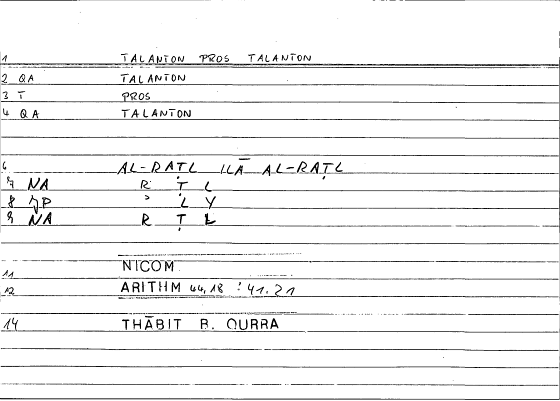 1 TALANTON PROS TALANTON
2 QA TALANTON
3 T PROS
4 QA TALANTON
6 AL-RAṬL ILĀ AL-RAṬL
7 NA R Ṭ L
8 JP ʾ L Y
9 NA R Ṭ L
11 NICOM
12 ARITHM 44,18 : 41.21
14 THĀBIT B. QURRA